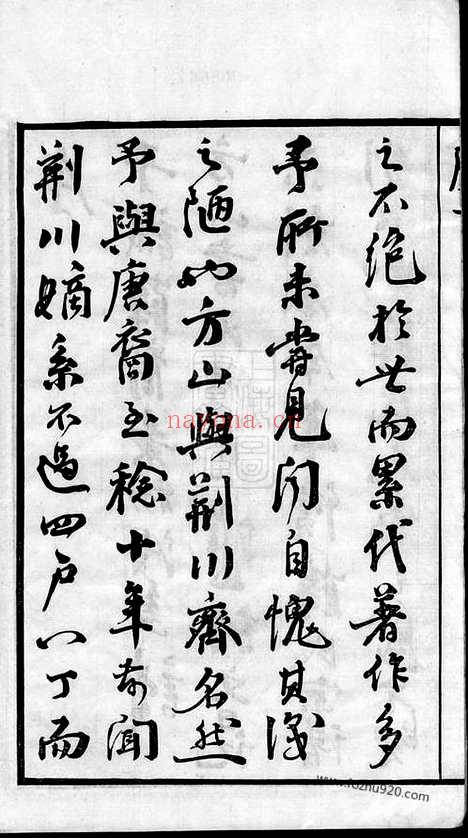 之不絕於世而累代著作多
予所未嘗見聞自愧其淺
之陋也方山與荆川齊名然
予與唐裔至稔十年前聞
荆川嫡系不過四户八丁而
nayona.cn
www.fozhu920.com